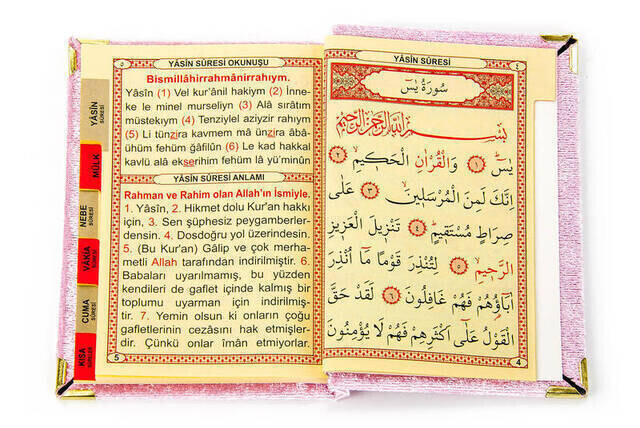 YÂSİN SÛRESİ OKUNUŞU
٥
Bismillâhirrahmânirrahıym.
Yâsîn (1) Vel kur'ânil hakiym (2) İnne-
ke le minel murseliyn (3) Alâ sırâtım
müstekıym (4) Tenziylel aziyzir rahıym
(5) Li tünzira kavmem mâ ünzira âbâ-
ühüm fehüm ğâfilûn (6) Le kad hakkal
kavlü alâ ekserihim fehüm lâ yü'minûn
YÂSİN SÛRESİ ANLAMI
Rahman ve Rahim olan Allah'ın İsmiyle.
1. Yâsîn, 2. Hikmet dolu Kur'an hakkı
için, 3. Sen şüphesiz peygamberler-
densin. 4. Dosdoğru yol üzerindesin.
5. (Bu Kur'an) Gâlip ve çok merha-
metli Allah tarafından indirilmiştir. 6.
Babaları uyarılmamış, bu yüzden
kendileri de gaflet içinde kalmış bir
toplumu uyarman için indirilmiş-
tir. 7. Yemin olsun ki onların çoğu
gafletlerinin cezasını hak etmişler-
dir. Çünkü onlar îmân etmiyorlar.
5
YÂSİN
SÛRESİ
MÜLK
SÛRESİ
NEBE
SÛRESİ
VÂKIA
SÛRESİ
CUMA
SÛRESİ
KISA
SÛRELER
YÂSİN SÛRESİ
٤
سُورَةُ يٰسٓ
بِسْمِ اللّٰهِ الرَّحْمٰنِ الرَّحِيمِ
يٰسٓ ﴿١﴾ وَالْقُرْاٰنِ الْحَكِيمِ ﴿٢﴾
اِنَّكَ لَمِنَ الْمُرْسَلِينَ ﴿٣﴾ عَلٰى
صِرَاطٍ مُسْتَقِيمٍ ﴿٤﴾ تَنْزِيلَ الْعَزِيزِ
الرَّحِيمِ ﴿٥﴾ لِتُنْذِرَ قَوْمًا مَٓا اُنْذِرَ
اٰبَٓاؤُهُمْ فَهُمْ غَافِلُونَ ﴿٦﴾ لَقَدْ حَقَّ
الْقَوْلُ عَلٰٓى اَكْثَرِهِمْ فَهُمْ لَا يُؤْمِنُونَ
4